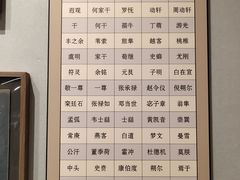 遐观 何家干 罗怃 动轩 周动轩
干 何干 孺牛 丁萌 游光
丰之余 苇索 旅隼 越客 桃椎
虞明 家干 荀继 史癖 尤刚
符灵 余铭 元艮 子明 白在宣
敬一尊 尊 张承禄 赵令仪 倪朔尔
栾廷石 张禄如 邓当世 宓子章 翁隼
孟弧 韦士繇 黄凯音 崇巽
常庚 燕客 白道 梦文 曼雪
公汗 董季荷 霍冲 杜德机 莫朕
中头 史贲 康伯度 朔尔 焉于